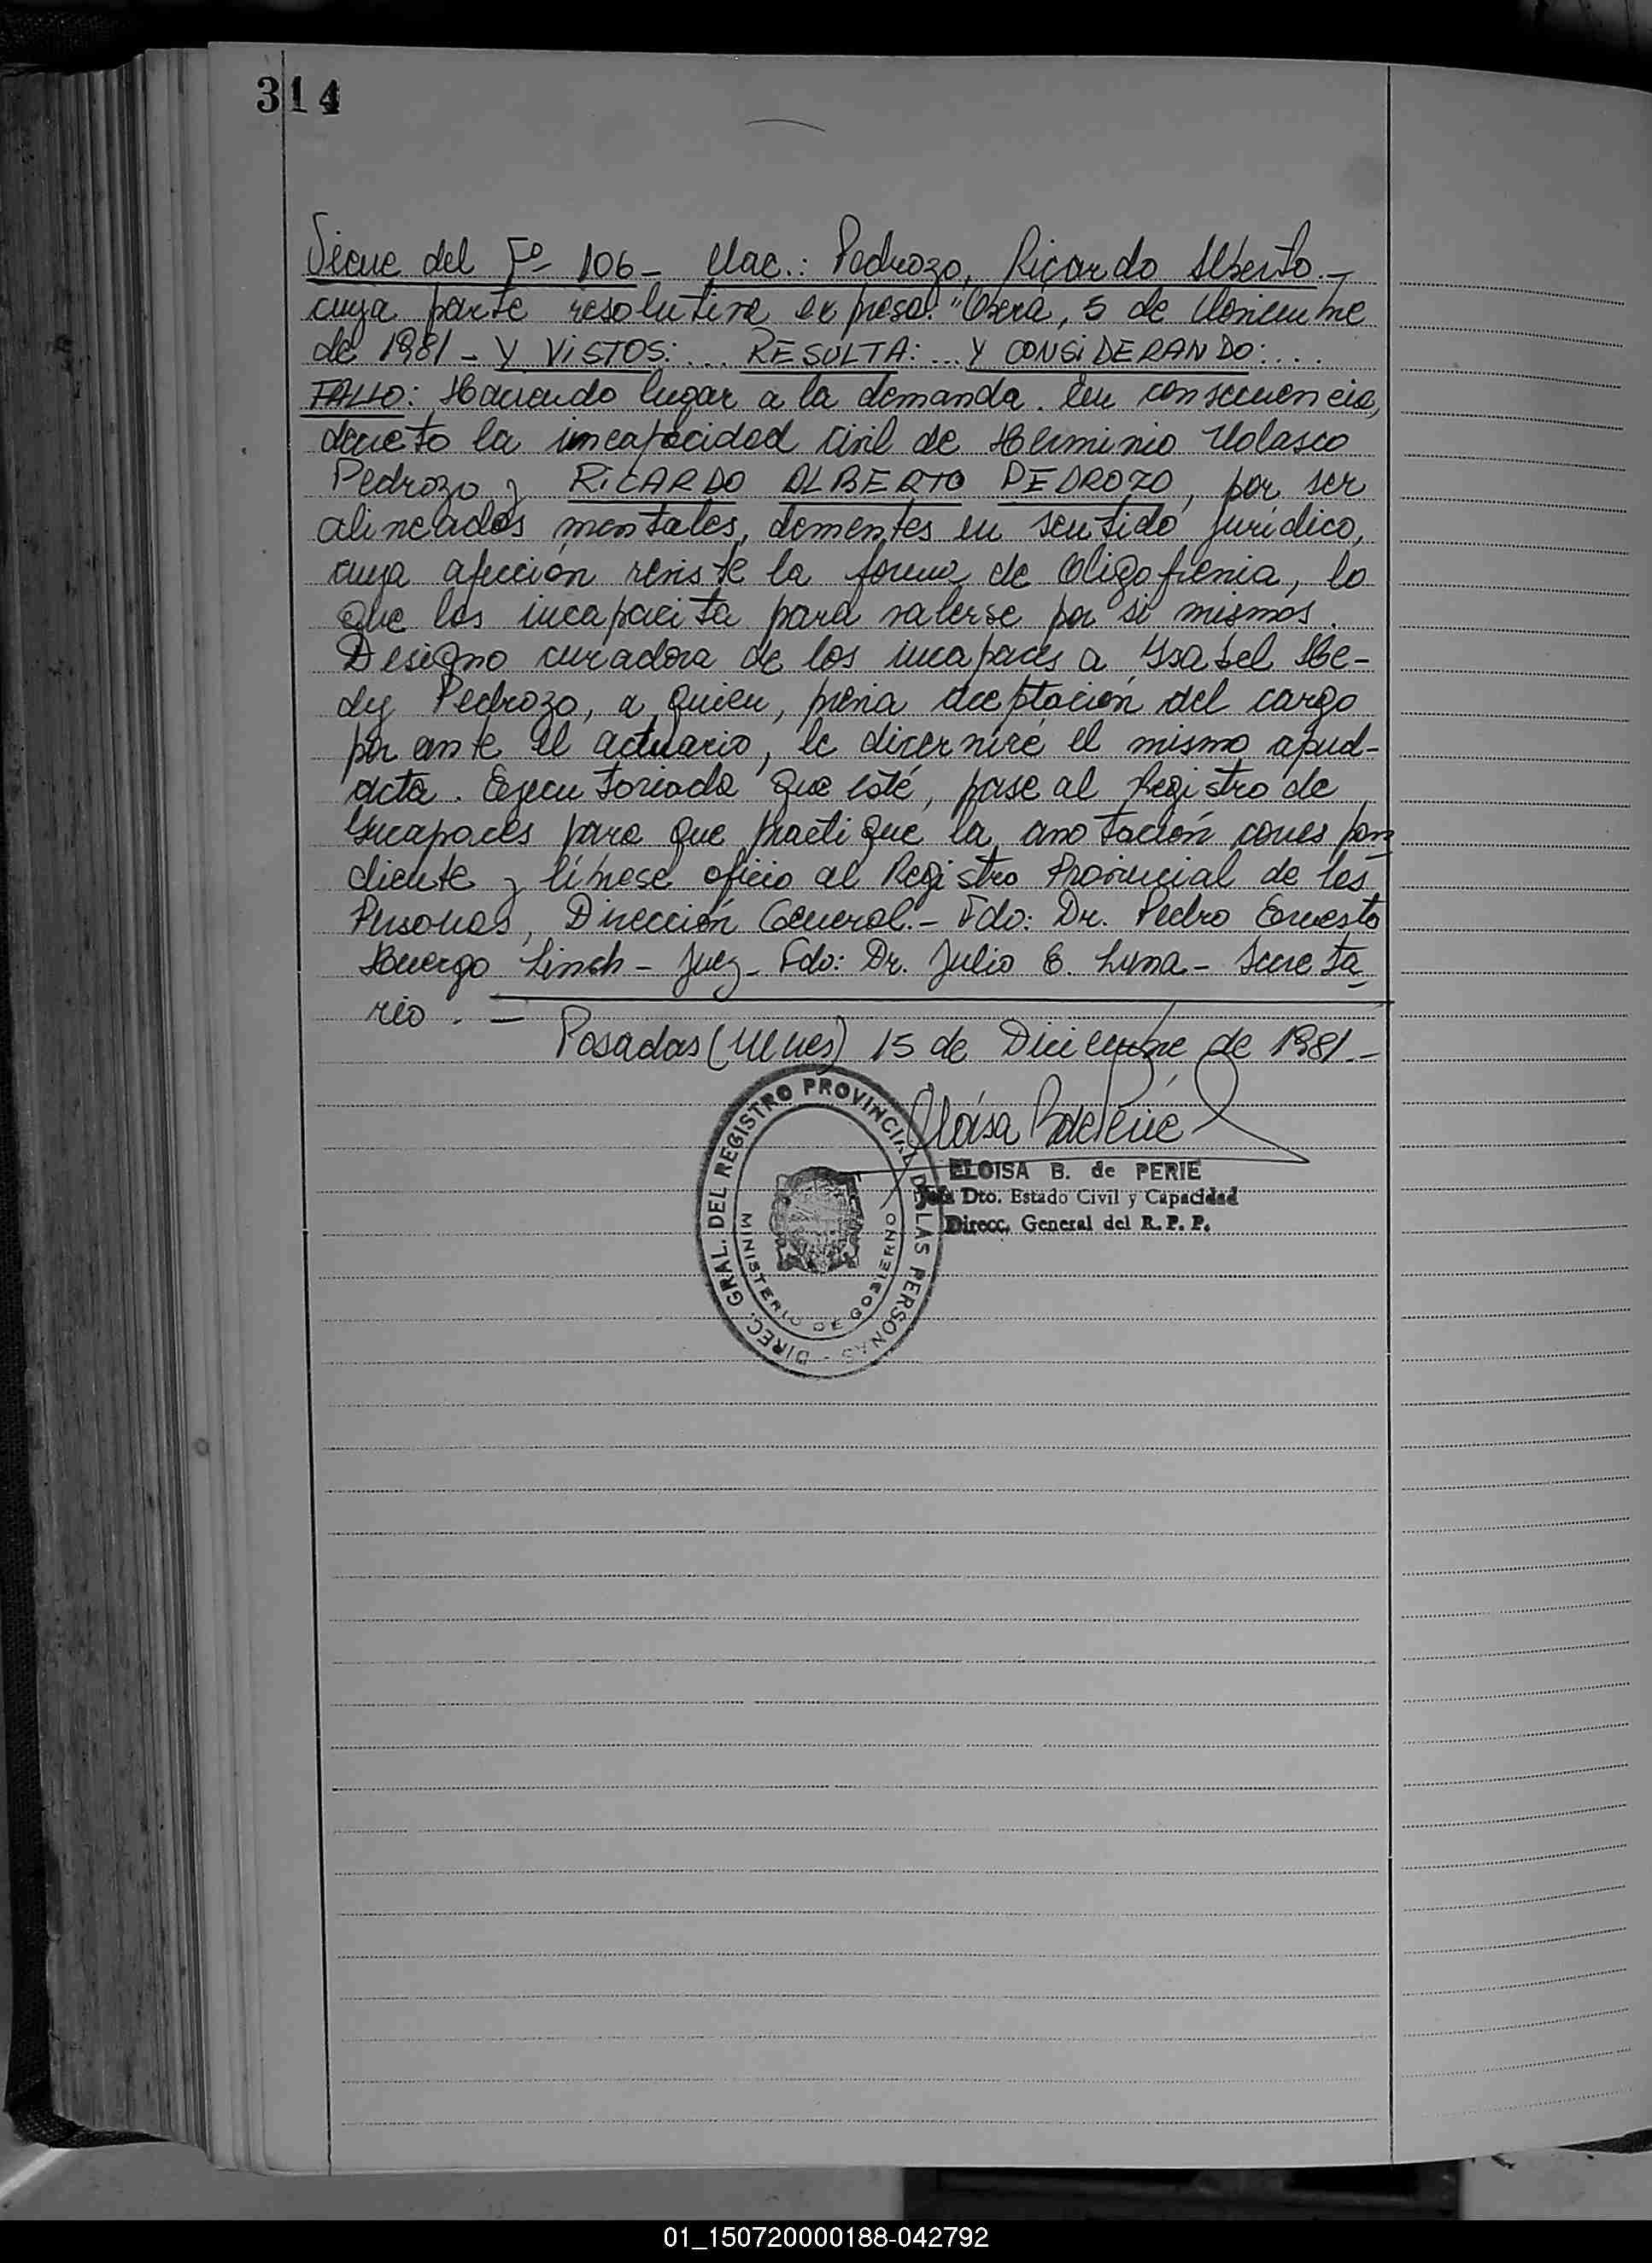 314
Sigue del Fº 106 - Nac.: Pedrozo, Ricardo Alberto.-
cuya parte resolutiva expresa: "Oberá, 5 de Noviembre
de 1981 - Y VISTOS:... RESULTA:... Y CONSIDERANDO:...
FALLO: Haciendo lugar a la demanda. En consecuencia,
decreto la incapacidad civil de Herminio Nolasco
Pedrozo y RICARDO ALBERTO PEDROZO, por ser
alineados mentales, dementes en sentido jurídico,
cuya afección reviste la forma de Oligofrenia, lo
que los incapacita para valerse por si mismos.
Designo curadora de los incapaces a Ysabel He-
dy Pedrozo, a quien, previa aceptación del cargo
por ante el actuario, le discerniré el mismo apud-
acta. Ejecutoriada que esté, pase al Registro de
Incapaces para que practique la anotación corres pon
diente y líbrese oficio al Registro Provincial de las
Personas, Dirección General.- Fdo: Dr. Pedro Ernesto
Huergo Linch - Juez - Fdo: Dr. Julio E. Luna - Secreta
rio. -
Posadas (Mnes) 15 de Diciembre de 1981.-
Eloísa B de Perié
ELOISA B. de PERIE
Jefa Dto. Estado Civil y Capacidad
Direcc. General del R. P. P.
DIREC. GRAL. DEL REGISTRO PROVINCIAL DE LAS PERSONAS -
MINISTERIO DE GOBIERNO
01_150720000188-042792